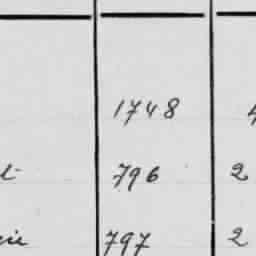 1748 4
796 2
797 2